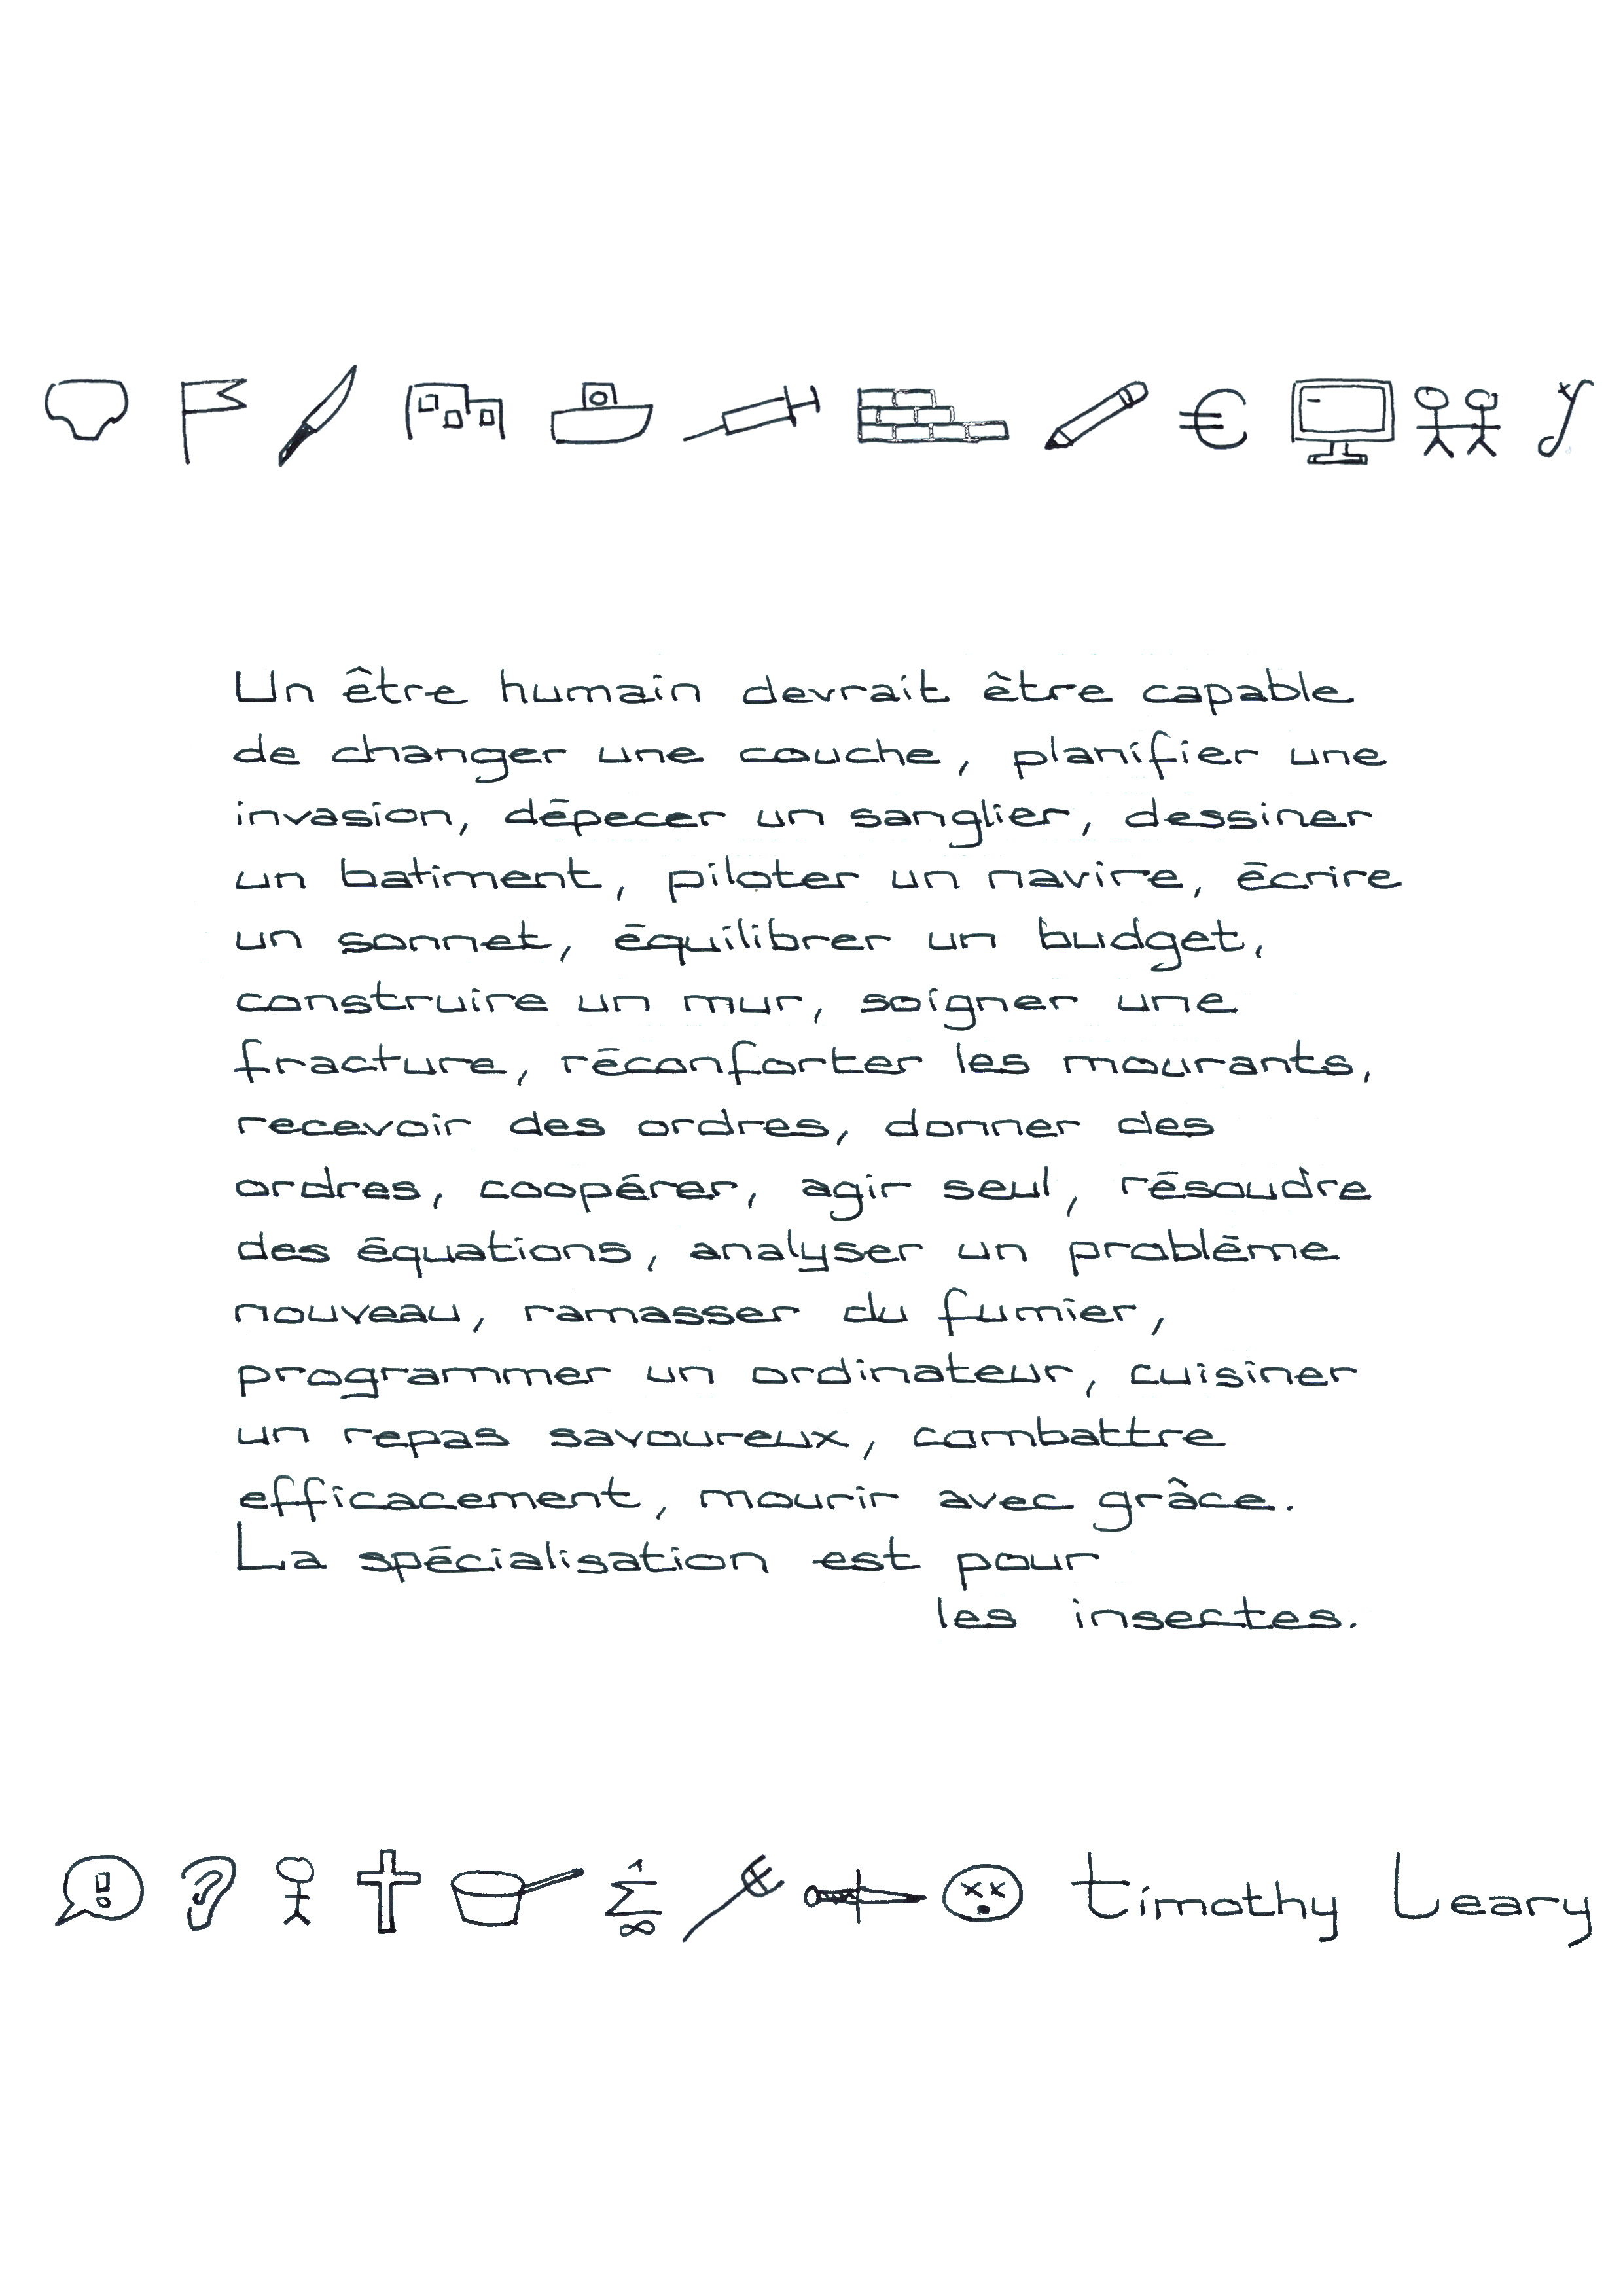 €
Un être humain devrait être capable
de changer une couche, planifier une
invasion, dépecer un sanglier, dessiner
un batiment, piloter un navire, écrire
un sonnet, équilibrer un budget,
construire un mur, soigner une
fracture, réconforter les mourants,
recevoir des ordres, donner des
ordres, coopérer, agir seul, résoudre
des équations, analyser un problème
nouveau, ramasser du fumier,
programmer un ordinateur, cuisiner
un repas savoureux, combattre
efficacement, mourir avec grâce.
La spécialisation est pour
les insectes.
! 1 Σ ∞ Timothy Leary